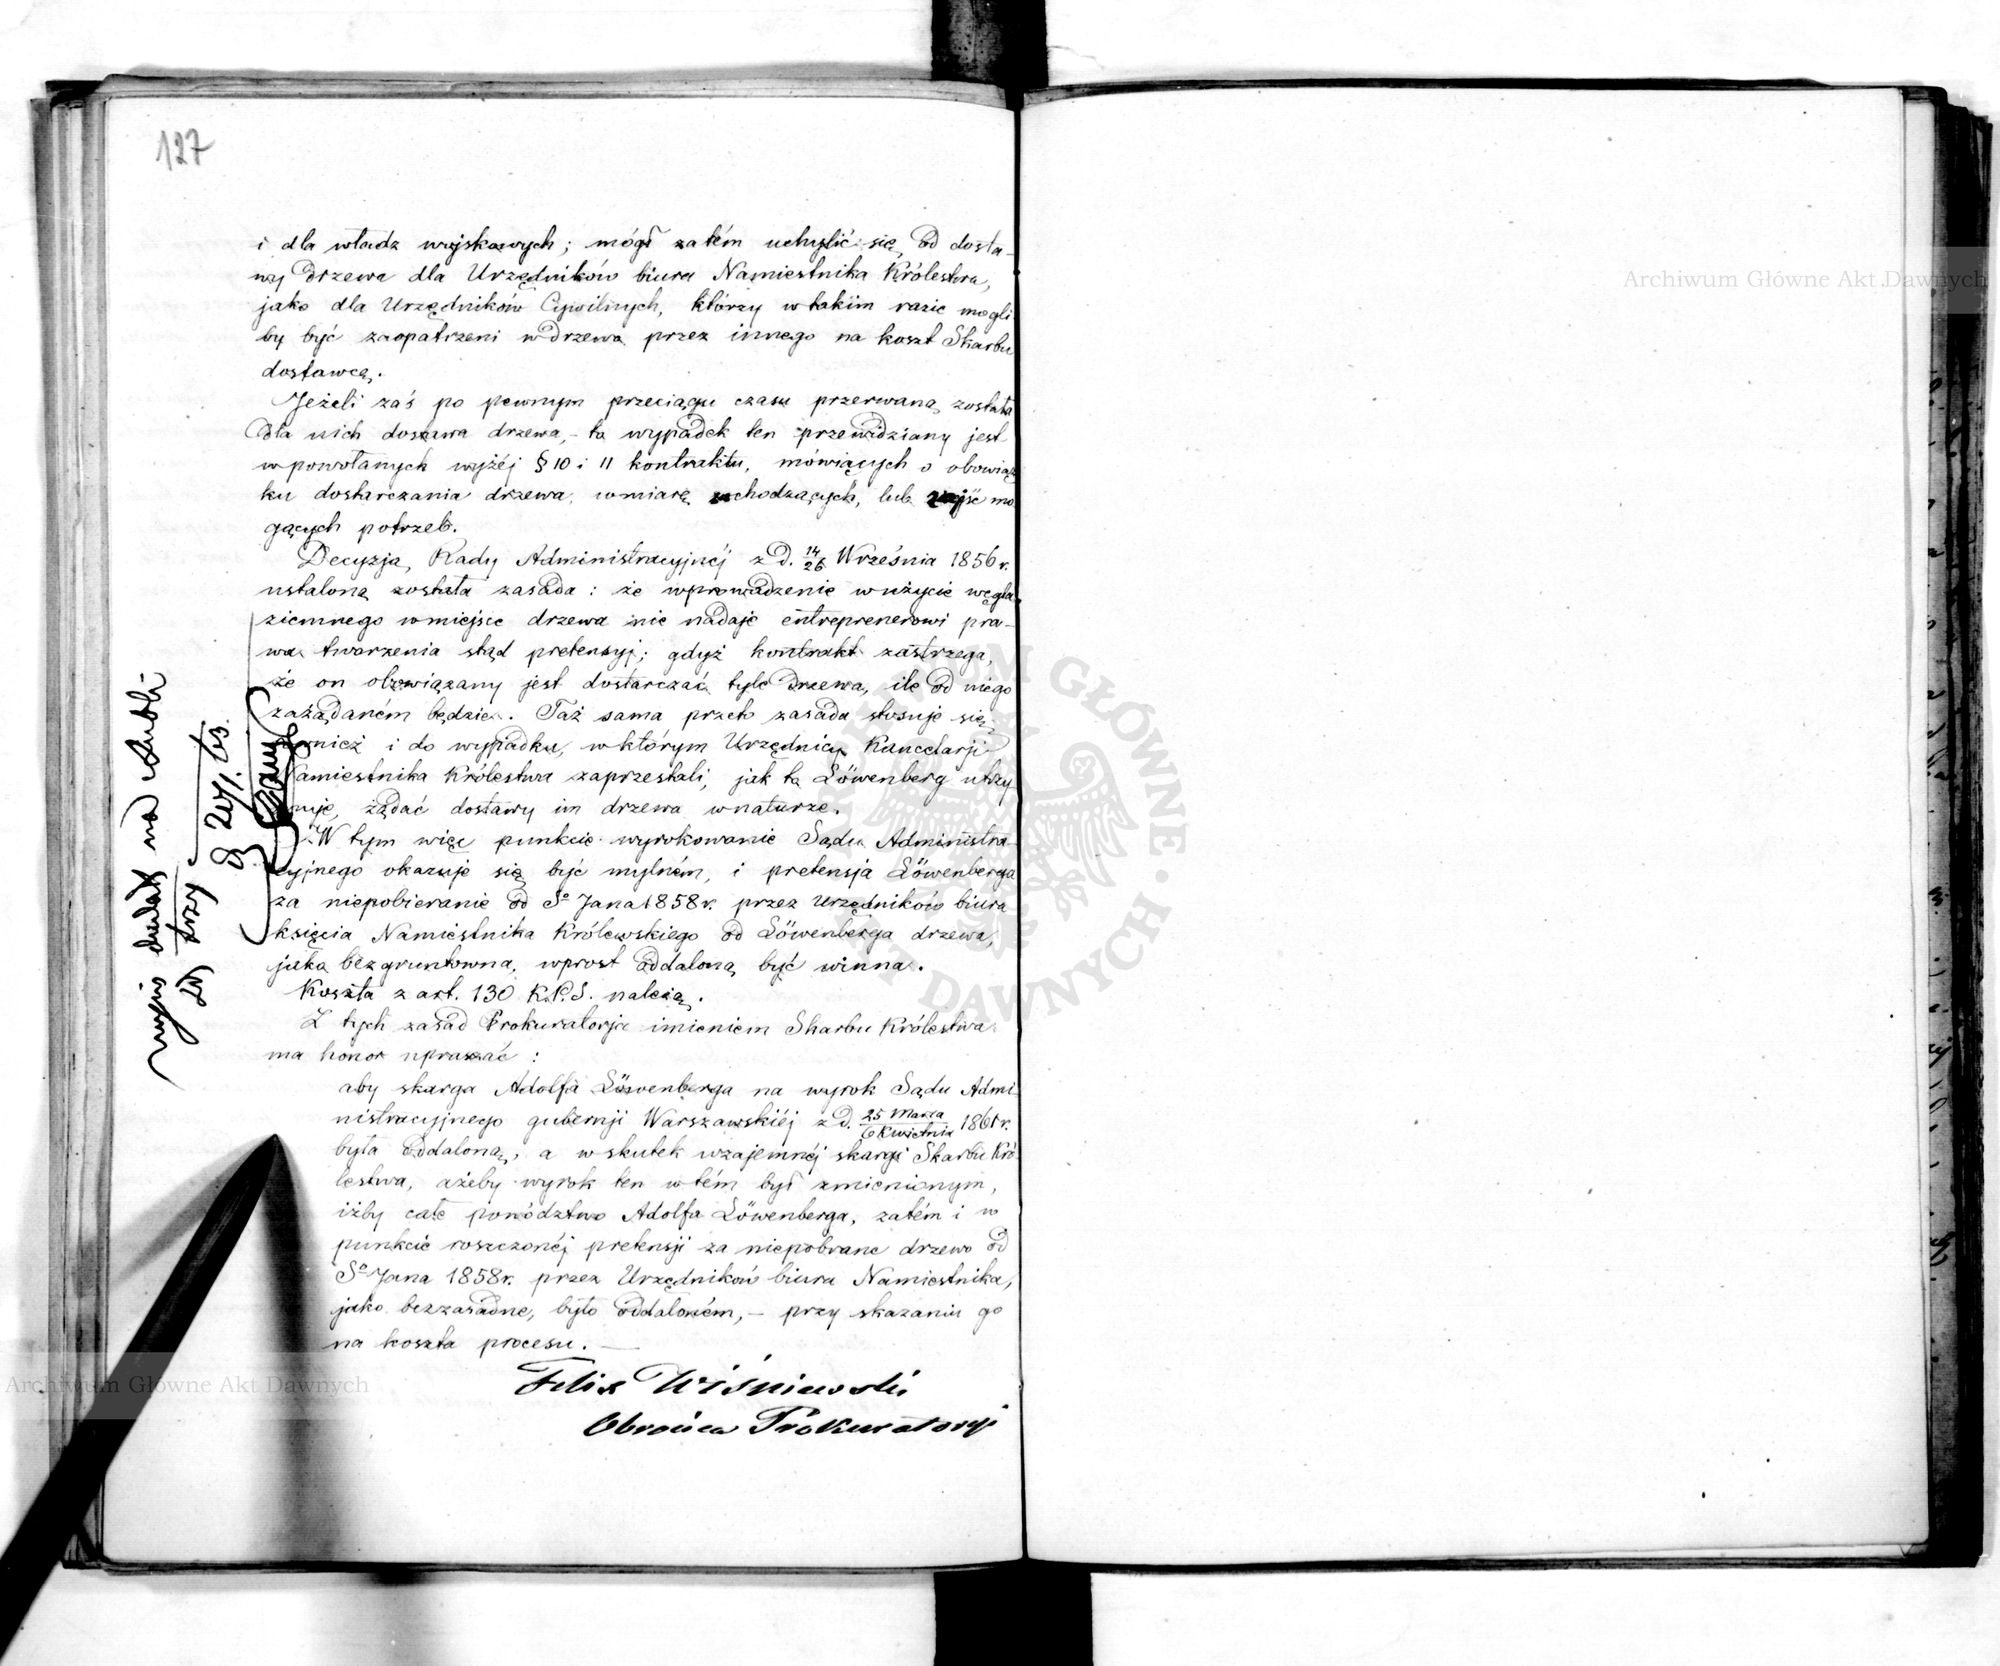 127
i dla władz wojskowych; mógł zatém uchylić się od dosta-
wy drzewa dla Urzędników biura Namiestnika Królestwa,
jako dla Urzędników Cywilnych, którzy w takim razie mogli
by być zaopatrzeni w drzewo przez innego na koszt Skarbu
dostawcą.
Jeżeli zaś po pewnym przeciągu czasu przerwaną została
dla nich dostawa drzewa, - to wypadek ten przewidziany jest
w powołanych wyżéj § 10 i 11 kontraktu, mówiących o obowiąz
ku dostarczania drzewa, w miarę zachodzących, lub zajść mo
gących potrzeb.
Decyzją Rady Administracyjnéj z d. 14/26 Września 1856 r.
ustaloną została zasada: że wprowadzenie w użycie węgla
ziemnego w miejsce drzewa nie nadaje entreprenerowi pra-
wa tworzenia stąd pretensyj; gdyż kontrakt zastrzega,
że on obowiązany jest dostarczać tyle drzewa, ile od niego
zażądaném będzie. Taż sama przeto zasada stosuje się
również i do wypadku, w którym Urzędnicy Kancelarji
Namiestnika Królestwa zaprzestali, jak to Löwenberg utrzy
muje, żądać dostawy im drzewa w naturze.
W tym więc punkcie wyrokowanie Sądu Administra
cyjnego okazuje się być mylném, i pretensja Löwenberga
za niepobieranie od Sº Jana 1858 r. przez Urzędników biura
księcia Namiestnika Królewskiego od Löwenberga drzewa,
jako bezgruntowna, wprost oddaloną być winna.
Koszta z art. 130 K.P.S. należą.
Z tych zasad Prokuratorja imieniem Skarbu Królestwa
ma honor upraszać:
aby skarga Adolfa Löwenberga na wyrok Sądu Admi
nistracyjnego gubernji Warszawskiéj z d. 25 Marca/6 Kwietnia 1861 r.
była oddaloną, a w skutek wzajemnéj skargi Skarbu Kró
lestwa, ażeby wyrok ten w tém był zmienionym,
iżby całe powództwo Adolfa Löwenberga, zatém i w
punkcie roszczonéj pretensji za niepobrane drzewo od
Sº Jana 1858 r. przez Urzędników biura Namiestnika,
jako bezzasadne, było oddaloném, - przy skazaniu go
na koszta procesu. -
Felix Wiśniewski
Obrońca Prokuratorji
Archiwum Główne Akt Dawnych
Archiwum Główne Akt Dawnych